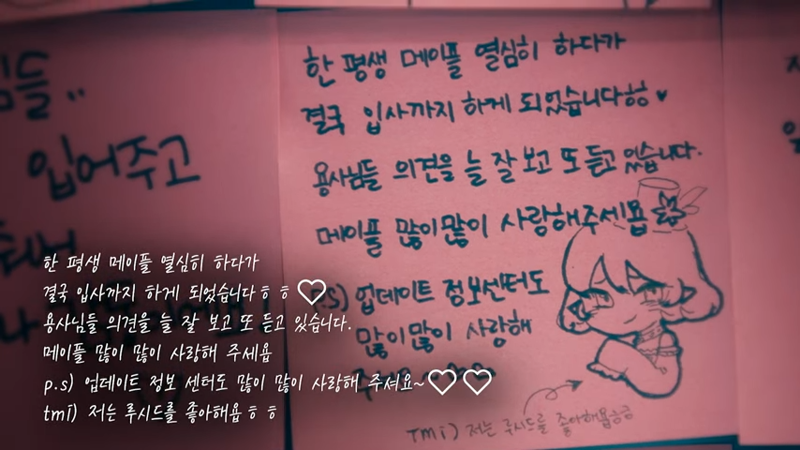 님들..
입어주고
한 평생 메이플 열심히 하다가
결국 입사까지 하게 되었습니다ㅎㅎ♥
용사님들 의견을 늘 잘 보고 또 듣고 있습니다.
메이플 많이많이 사랑해주세욥
P.S) 업데이트 정보센터도
많이많이 사랑해
TMI) 저는 루시드를 좋아해욥ㅎㅎ
한 평생 메이플 열심히 하다가
결국 입사까지 하게 되었습니다ㅎㅎ♡
용사님들 의견을 늘 잘 보고 또 듣고 있습니다.
메이플 많이 많이 사랑해 주세욥
p.s) 업데이트 정보 센터도 많이 많이 사랑해 주셔요~♡♡
tmi) 저는 루시드를 좋아해욥ㅎㅎ